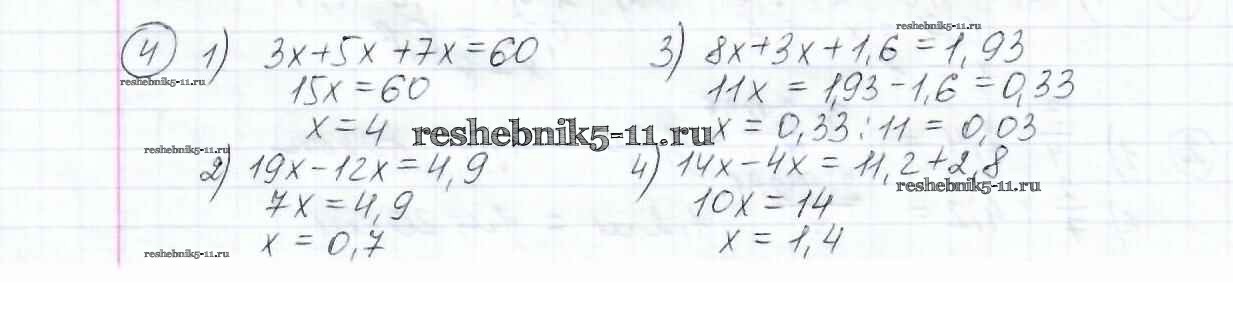 4 1) 3x+5x+7x=60
15x=60
x=4
2) 19x-12x=4,9
7x=4,9
x=0,7
3) 8x+3x+1,6=1,93
11x=1,93-1,6=0,33
x=0,33:11=0,03
4) 14x-4x=11,2+2,8
10x=14
x=1,4
reshebnik5-11.ru
reshebnik5-11.ru
reshebnik5-11.ru
reshebnik5-11.ru
reshebnik5-11.ru
reshebnik5-11.ru